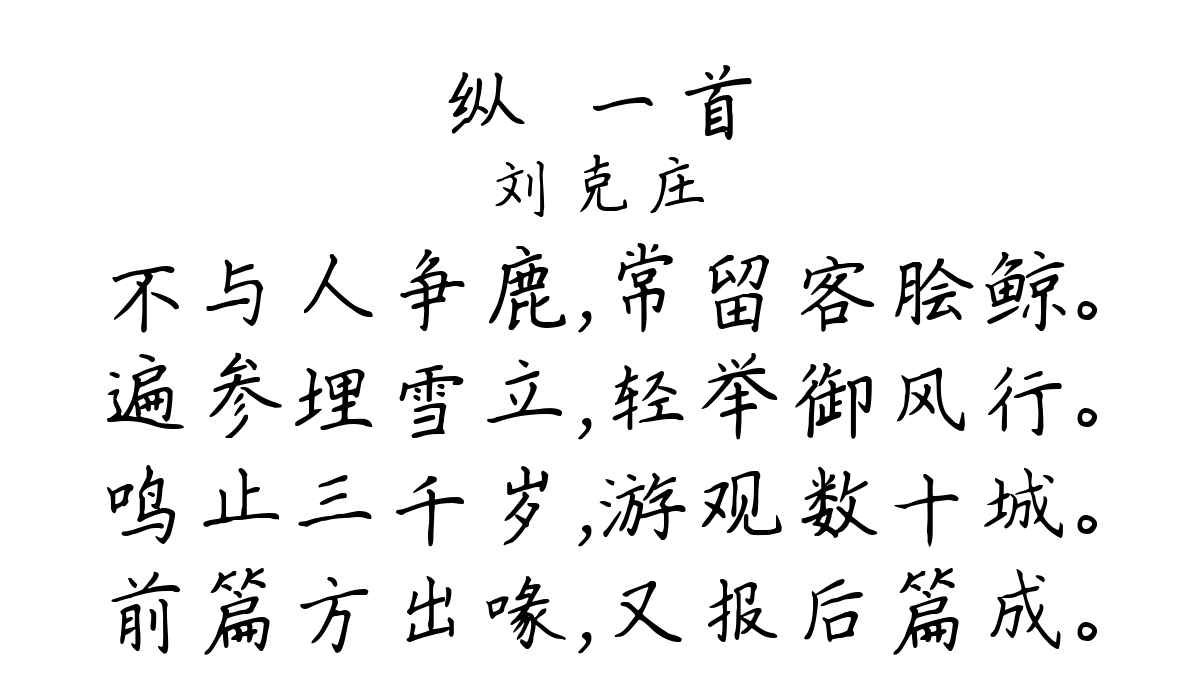 纵 一首
刘克庄
不与人争鹿,常留客脍鲸。
遍参埋雪立,轻举御风行。
鸣止三千岁,游观数十城。
前篇方出喙,又报后篇成。